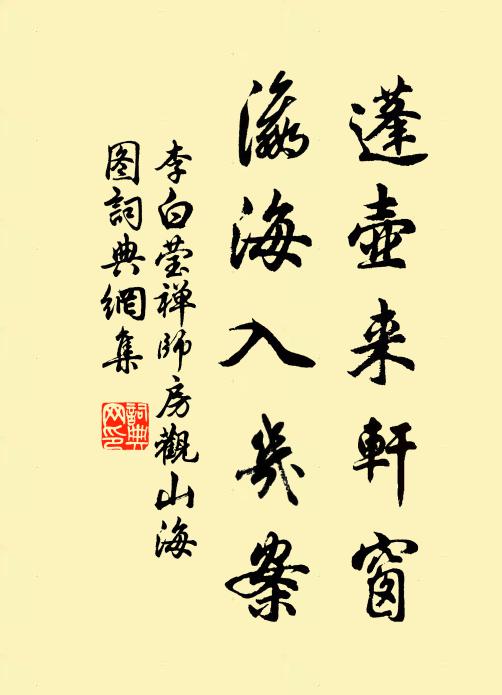 蓬壺来軒窗
瀛海入幾案
李白莹禅师房觀山海
图詞典網集
詞典网印